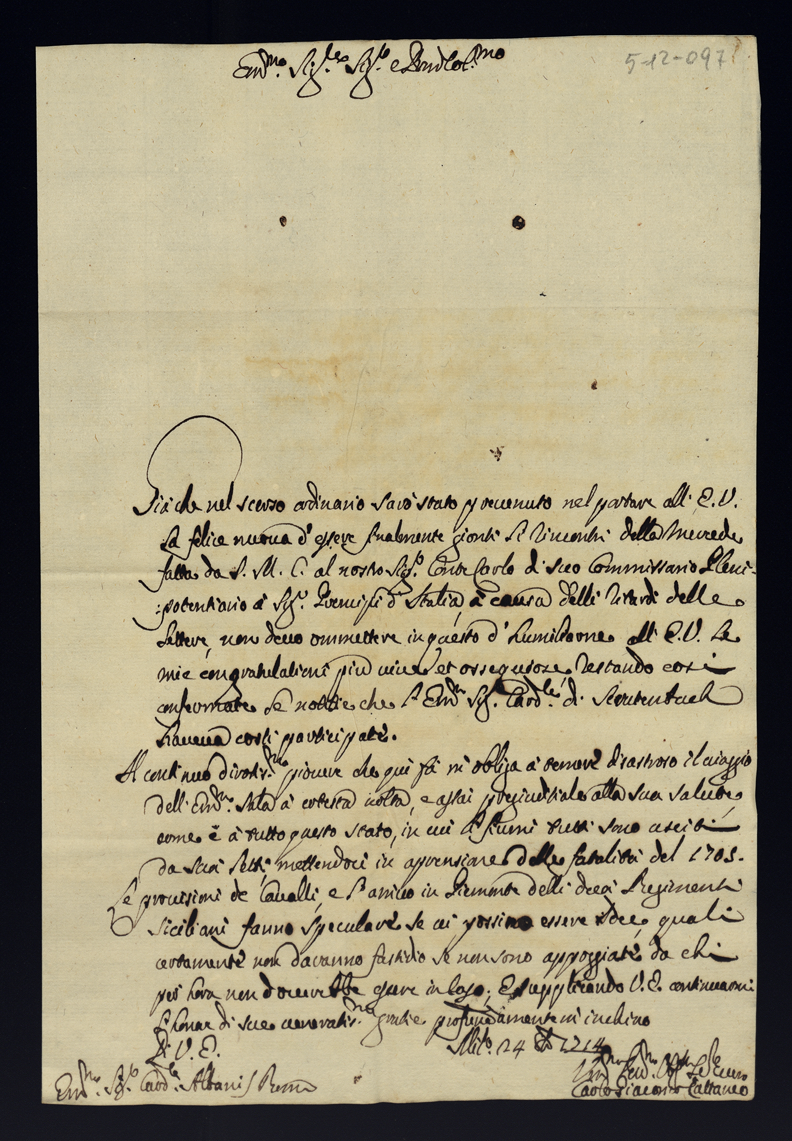 Em.mo Sig.re Sig.re e Pron Col.mo
5-12-097
Già che nel scorso ordinario sarò stato prevenuto nel portare all' E. V.
la felice nuova d'essere finalmente gionti li rincontri della mercede
fatta da S. M. C. al nostro Sig.r Conte Carlo di suo Commissario Pleni-
:potentiario a Sig.ri Prencipi d'Italia, à causa delli ritardi delle
lettere, non devo ommettere in questo d'humiliarne all' E. V. le
mie congratulationi più vive, et ossequiose, restando così
confermate le notitie che l'Em.mo Sig.r Card.le di Scrutembach
haveva costì participate.
Il continuo dirotiss.mo piovere che quì fà mi obliga à temere disastroso il viaggio
dell' Em.mo à cotesta volta, e assai pregiuditiale alla sua salute,
come è à tutto questo stato, in cui li fiumi tutti sono usciti
da suoi letti, mettendoci in apprensione delle fatalità del 1705.
Le provisioni de Cavalli, e l'arrivo in Piemonte delli dieci Regimenti
Siciliani fanno speculare se vi possino essere idee, quali
certamente non daranno fastidio se non sono appoggiate da chi
per hora non dovrebbe essere in caso; E supplicando V. E. continuarmi
l'honor di sue veneratis.me gratie profundamente mi inchino
Di V. E.
Mil.o 24 1714
Em.mo Sig.r Card.le Albani / Roma
Carlo Giacomo Cattaneo